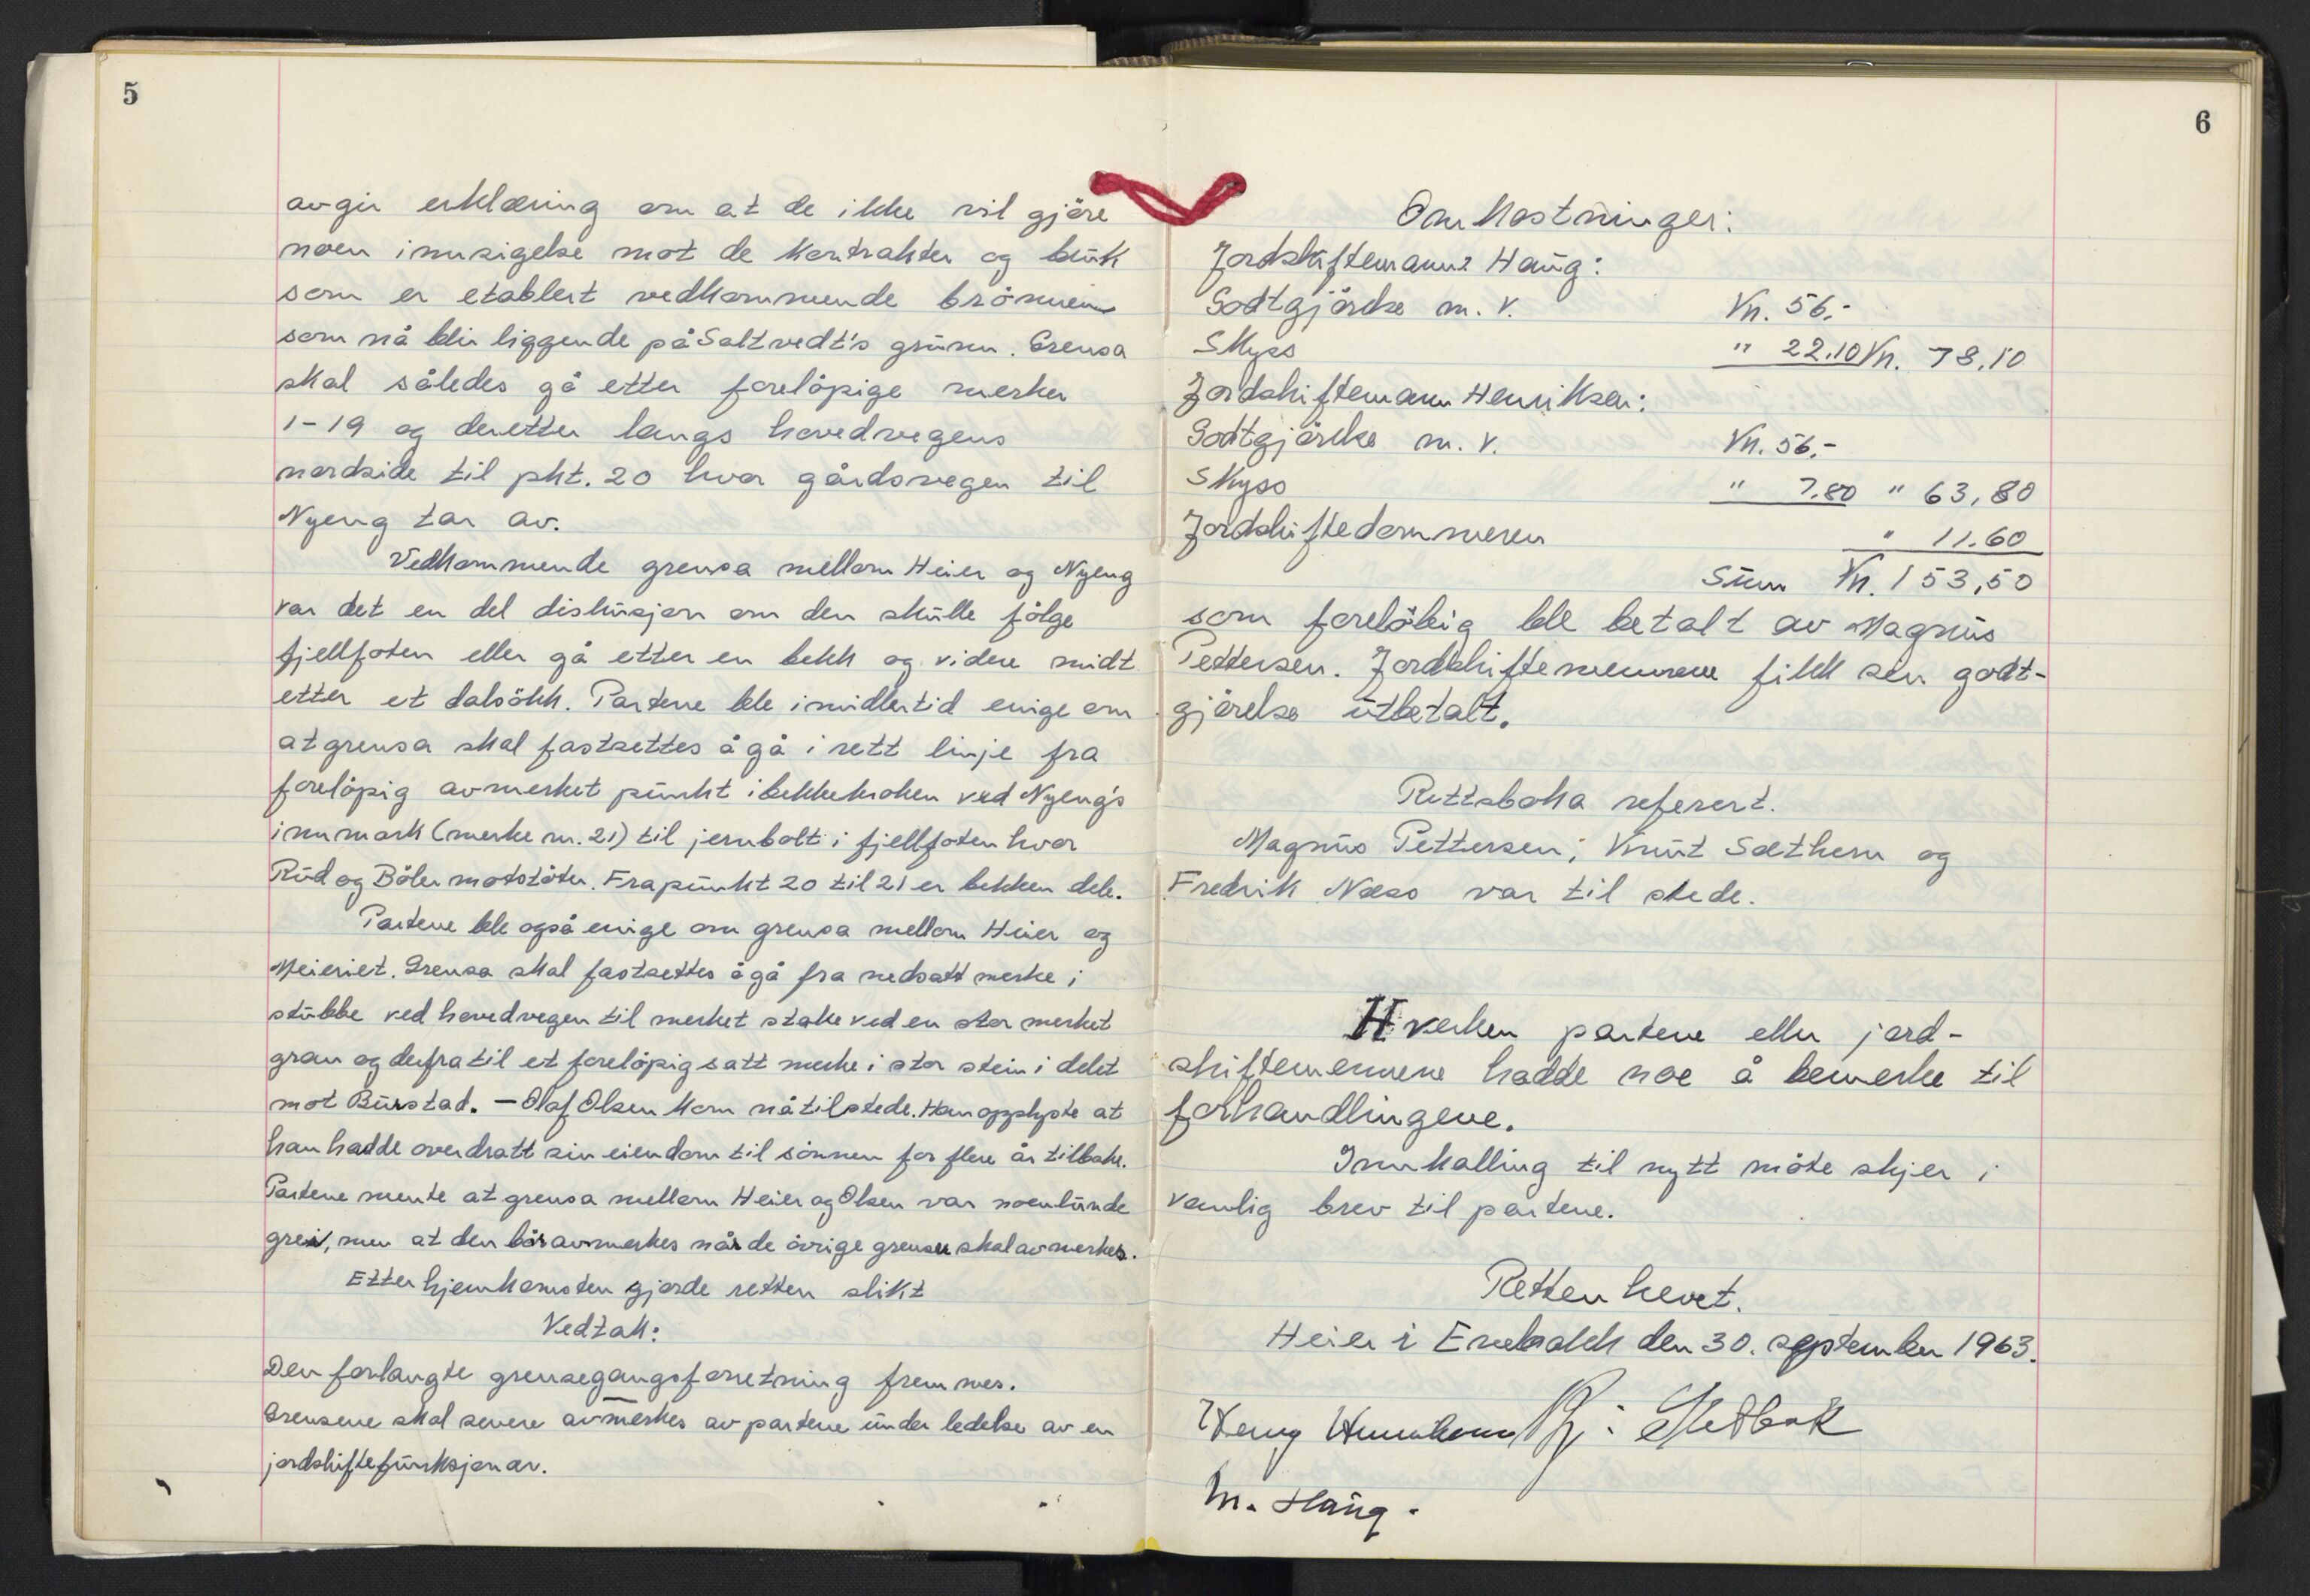 5
avgir erklæring om at de ikke vil gjöre
noen innsigelse mot de kontrakter og bruk
som er etablert vedkommende brönnen
som nå blir liggende på Saltvedt's grunn. Grensa
skal således gå etter forelöpige merker
1-19 og deretter langs hovedvegens
nordside til pkt. 20 hvor gårdsvegen til
Nyeng tar av.
Vedkommende grensa mellom Heier og Nyeng
var det en del diskusjon om den skulle fölge
fjellfoten eller gå etter en bekk og videre midt
etter et dalsökk. Partene ble imidlertid enige om
at grensa skal fastsettes å gå i rett linje fra
forelöpig avmerket punkt i bekkekroken ved Nyeng's
innmark (merke nr. 21) til jernbolt i fjellfoten hvor
Rud og Böler motstöter. Fra punkt 20 til 21 er bekken dele.
Partene ble også enige om grensa mellom Heier og
Meieriet. Grensa skal fastsettes å gå fra nedsatt merke i
stubbe ved hovedvegen til merket stake ved en stor merket
gran og derfra til et forelöpig satt merke i stor stein i delet
mot Burstad. — Olaf Olsen kom nå til stede. Han opplyste at
han hadde overdratt sin eiendom til sönnen for flere år tilbake.
Partene mente at grensa mellom Heier og Olsen var noenlunde
grei, men at den bör avmerkes når de övrige grenser skal avmerkes.
Etter hjemkomsten gjorde retten slikt
Vedtak:
Den forlangte grensegangsforretning fremmes.
Grensene skal senere avmerkes av partene under ledelse av en
jordskiftefunksjonær.
6
Omkostninger:
Jordskiftemann Haug:
Godtgjörelse m. v. Kr. 56.-
Skyss " 22.10 Kr. 78,10
Jordskiftemann Henriksen:
Godtgjörelse m. v. Kr. 56.-
Skyss " 7.80 " 63,80
Jordskiftedommeren " 11.60
Sum Kr. 153,50
som forelöbig ble betalt av Magnus
Pettersen. Jordskiftemennene fikk sin godt-
gjörelse utbetalt.
Rettsboka referert.
Magnus Pettersen, Knut Sæthern og
Fredrik Næss var til stede.
Hverken partene eller jord-
skiftemennene hadde noe å bemerke til
forhandlingene.
Innkalling til nytt möte skjer i
vanlig brev til partene.
Retten hevet.
Heier i Enebakk den 30. september 1963.
M. Haug.